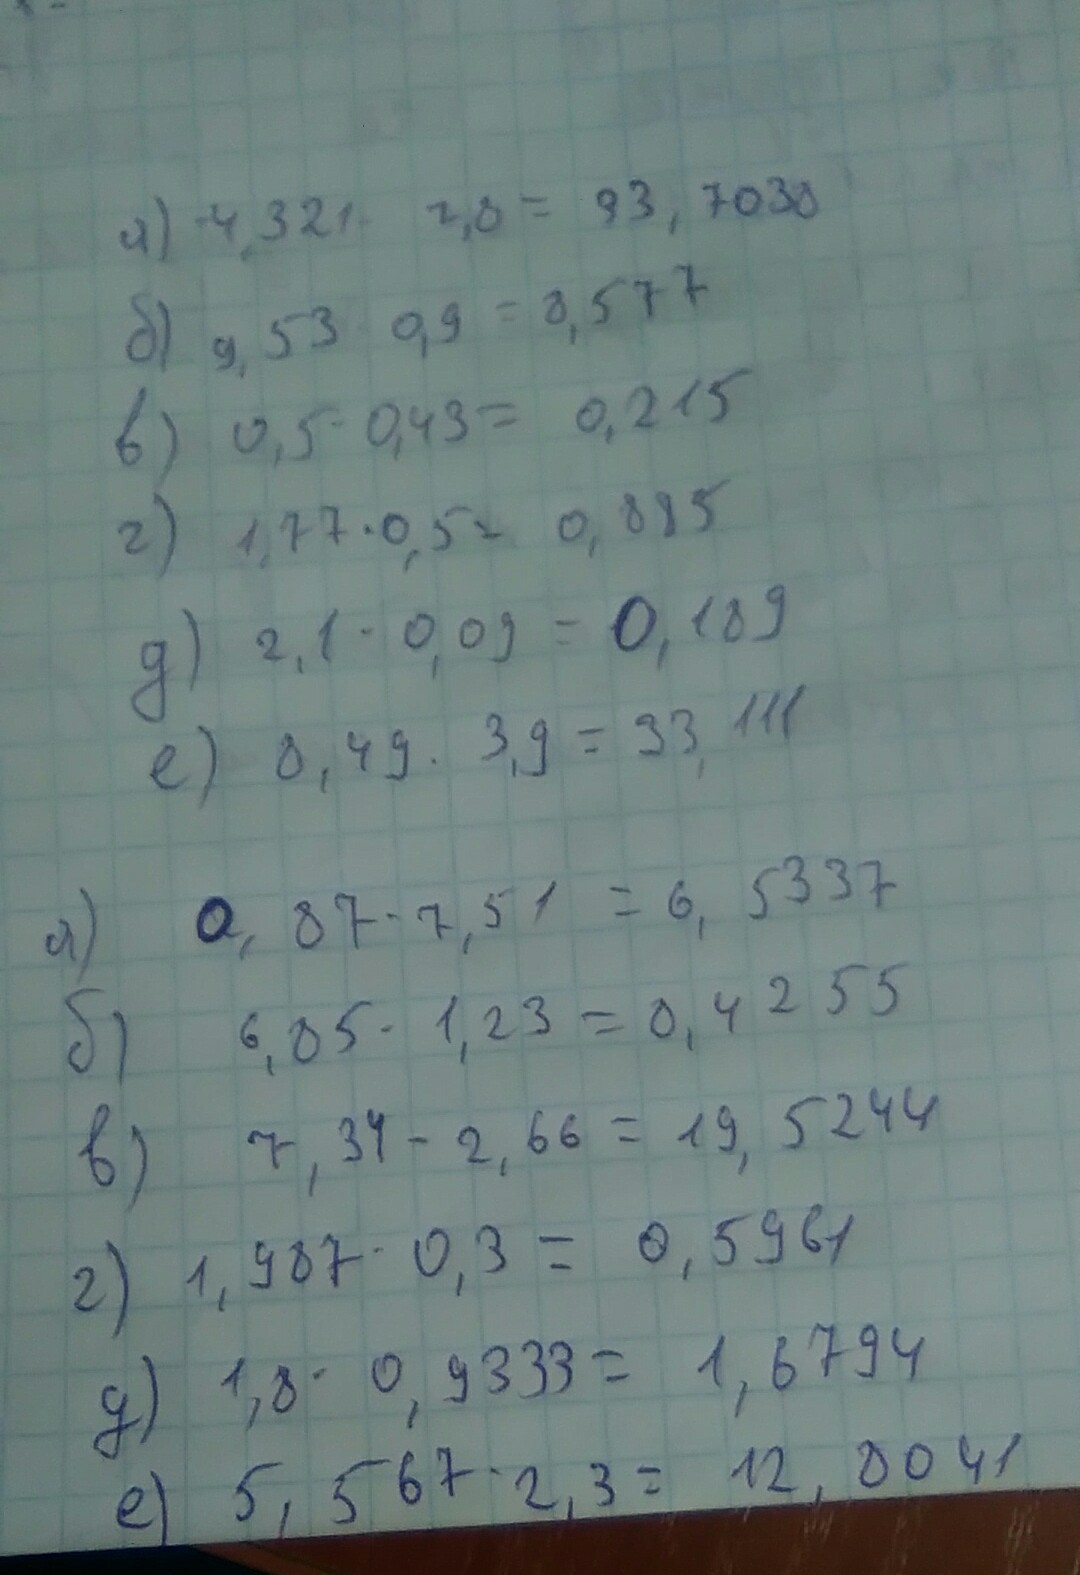 а) 4,321 · 7,8 = 93,7038
б) 9,53 · 0,9 = 8,577
в) 0,5 · 0,43 = 0,215
г) 1,77 · 0,5 = 0,885
д) 2,1 · 0,09 = 0,189
е) 8,49 · 3,9 = 33,111
а) 0,87 · 7,51 = 6,5337
б) 6,85 · 1,23 = 8,4255
в) 7,34 · 2,66 = 19,5244
г) 1,987 · 0,3 = 0,5961
д) 1,8 · 0,9333 = 1,6794
е) 5,567 · 2,3 = 12,8041